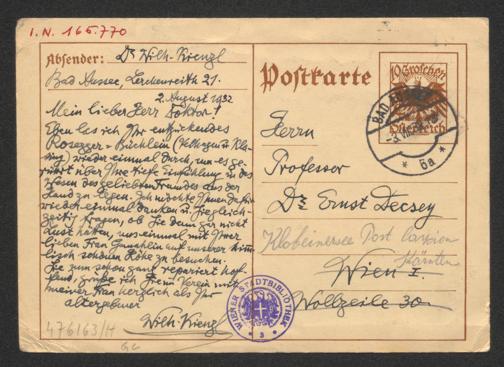 I. N. 165.770
Absender: Dr Wilh. Kienzl
Bad Aussee, Lerchenreith 21.
2. August 1932
Mein lieber Herr Doktor!
Eben las ich Ihr entzückendes
Rosegger-Büchlein (Velhagen u. Kla-
sing) wieder einmal durch, von
rührt über Ihre tiefe Einfühlung in das
Wesen des geliebten Freundes aus der
Ich möchte Ihnen dafür
wieder einmal danken u. zugleich
fragen, ob Sie denn gar nicht
Lust hätten, uns einmal mit Ihrer
lieben Frau Gemahlin auf unserer
Höhe zu besuchen.
Sie zum schon ganz repariert
grüße ich Sie im Verein mit
meiner Frau herzlich als Ihr
altergebener
Wilh. Kienzl
476163/H
Postkarte
10 Groschen
Österreich
BAD
* 6a *
Herrn
Professor
Dr. Ernst Decsey
Post
Kärnten
Wien I.
Wollzeile 30
WIENER STADTBIBLIOTHEK